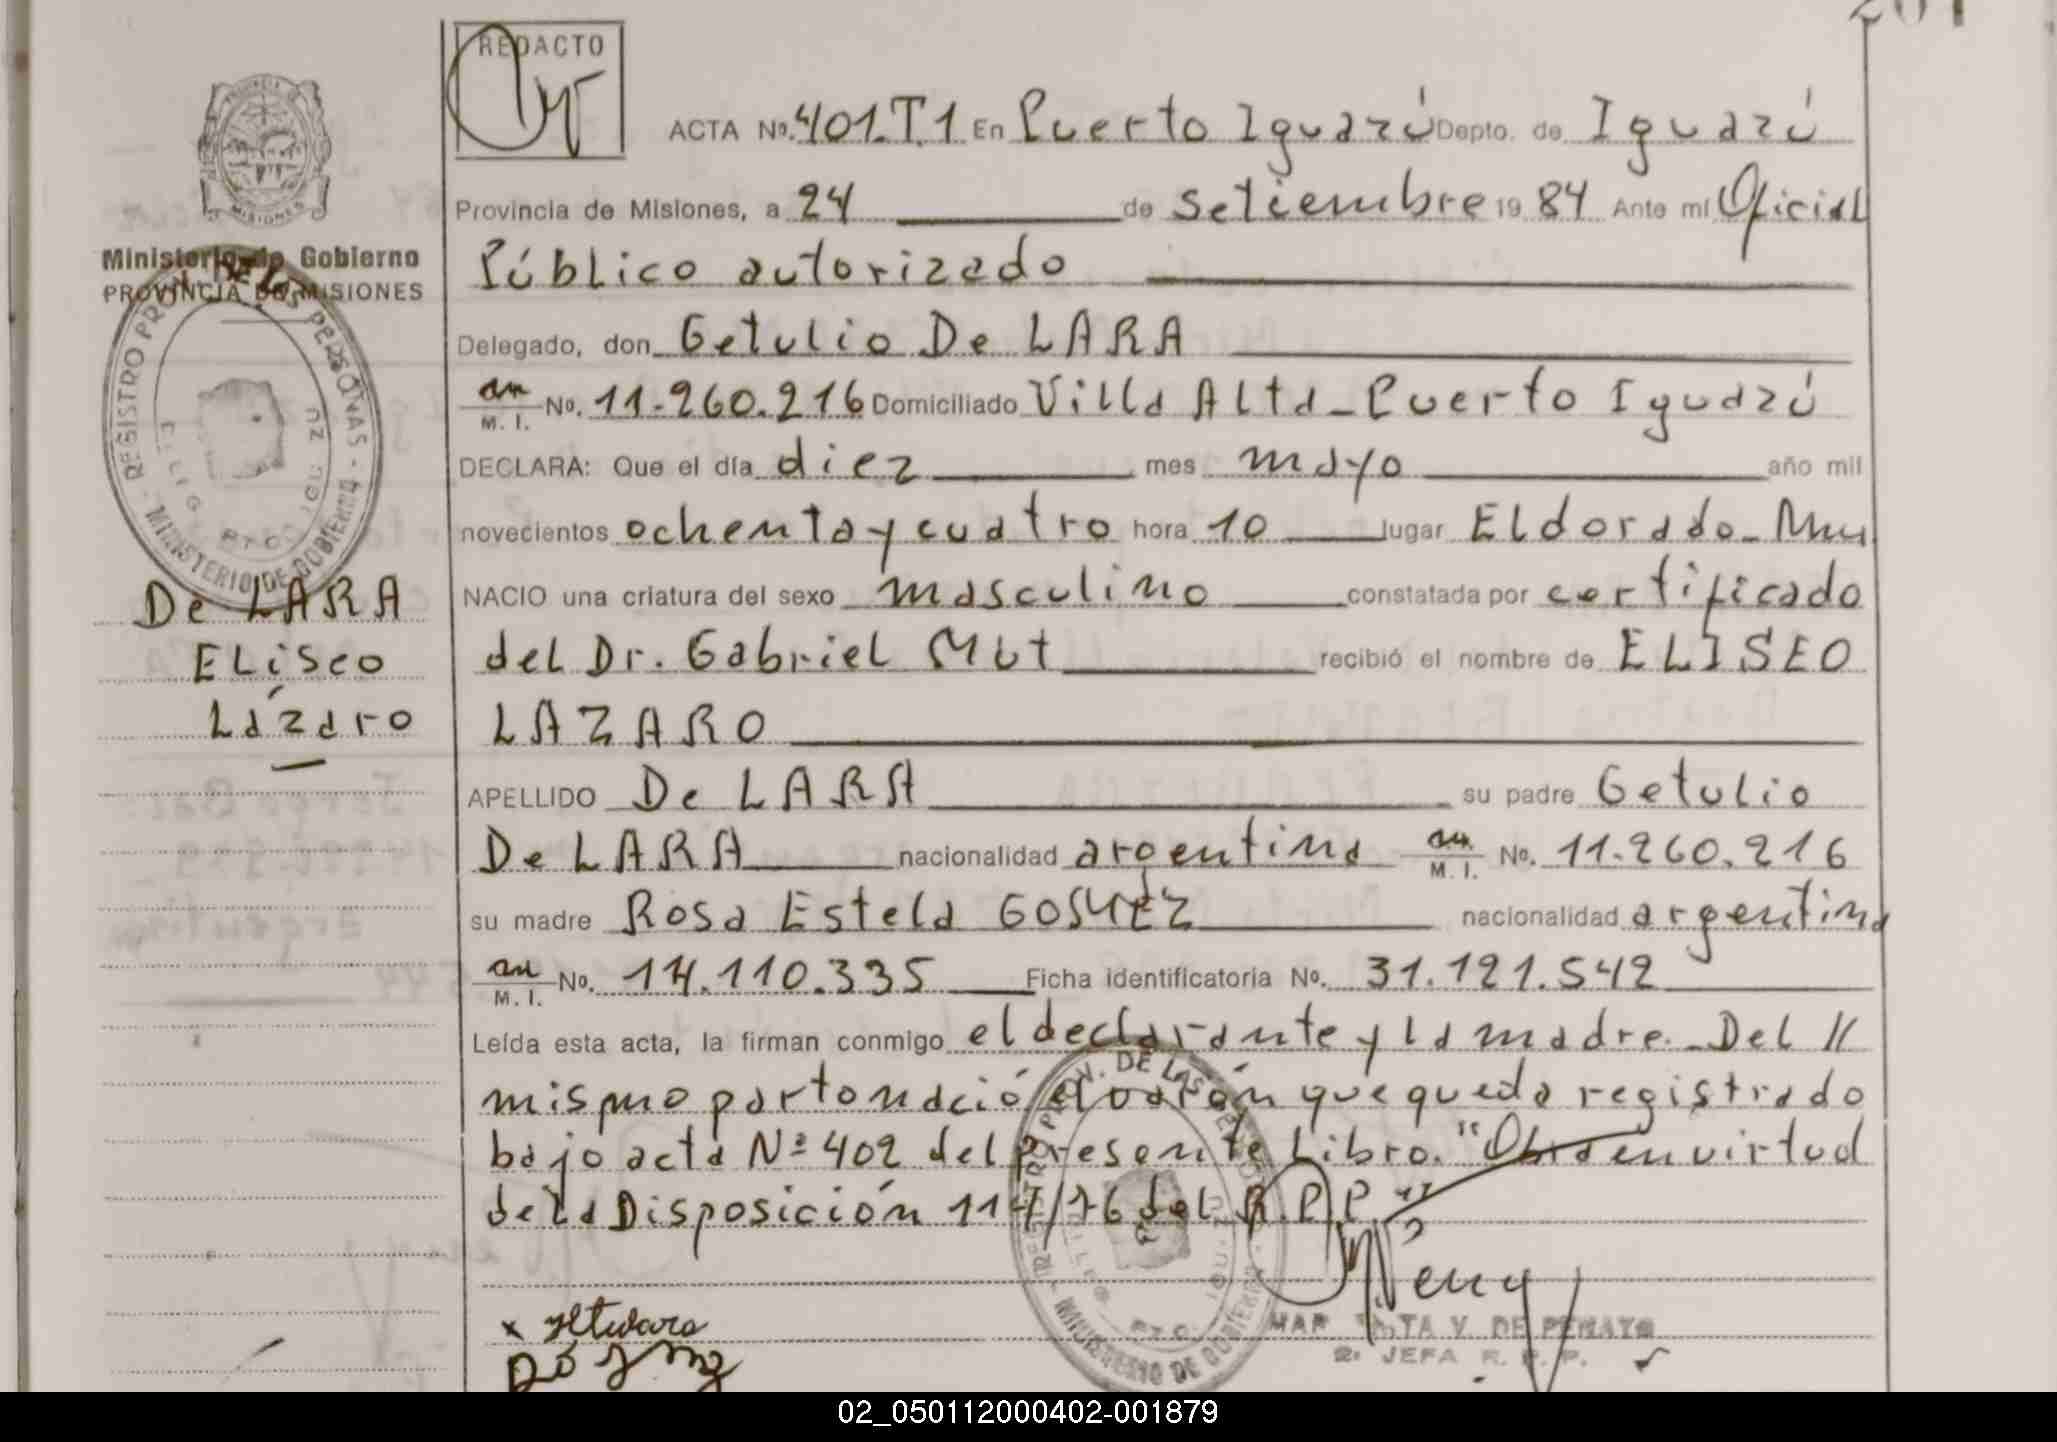 REDACTO
ACTA No. 401.T.1 En Puerto Iguazú Depto. de Iguazú
Provincia de Misiones, a 24 de setiembre 19 84 Ante mí Oficial
Público autorizado
Delegado, don Getulio De LARA
M. I. No. 11.260.216 Domiciliado Villa Alta - Puerto Iguazú
DECLARA: Que el día diez mes mayo año mil
novecientos ochenta y cuatro hora 10 lugar Eldorado -
NACIO una criatura del sexo masculino constatada por certificado
del Dr. Gabriel Mut recibió el nombre de ELISEO
LAZARO
APELLIDO De LARA su padre Getulio
De LARA nacionalidad argentina M. I. No. 11.260.216
su madre Rosa Estela nacionalidad argentina
M. I. No. 14.110.335 Ficha identificatoria No. 31.121.542
Leída esta acta, la firman conmigo el declarante y la madre. - Del //
mismo parto nació el varón que queda registrado
bajo acta Nº 402 del presente Libro. en virtud
de la Disposición /76 del R.P.P."
PROVINCIA DE
MISIONES
Ministerio de Gobierno
PROVINCIA DE MISIONES
REGISTRO PROV. DE LAS PERSONAS - MINISTERIO DE GOBIERNO
De LARA
ELiseo
Lázaro
REGISTRO PROV. DE LAS PERSONAS - MINISTERIO DE GOBIERNO
V. DE PENAYO
JEFA R. P. P.
02_050112000402-001879